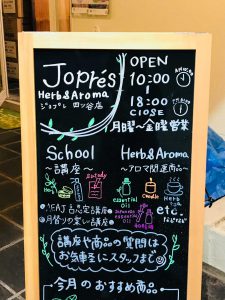 Joprés
Herb&Aroma
ジョプレ 四ツ谷店
OPEN
10:00
18:00
CLOSE
月曜〜金曜営業
School
〜講座〜
Herb&Aroma
〜アロマ関連商品〜
Herb
Study
essential
Oil
Candle
Herb
Japanese essential
Oil
etc.
などなど
●AEAJ 占
●月替りの楽しい講座
講座や商品の質問は
お気軽にスタッフまで
今月のおすすめ商品